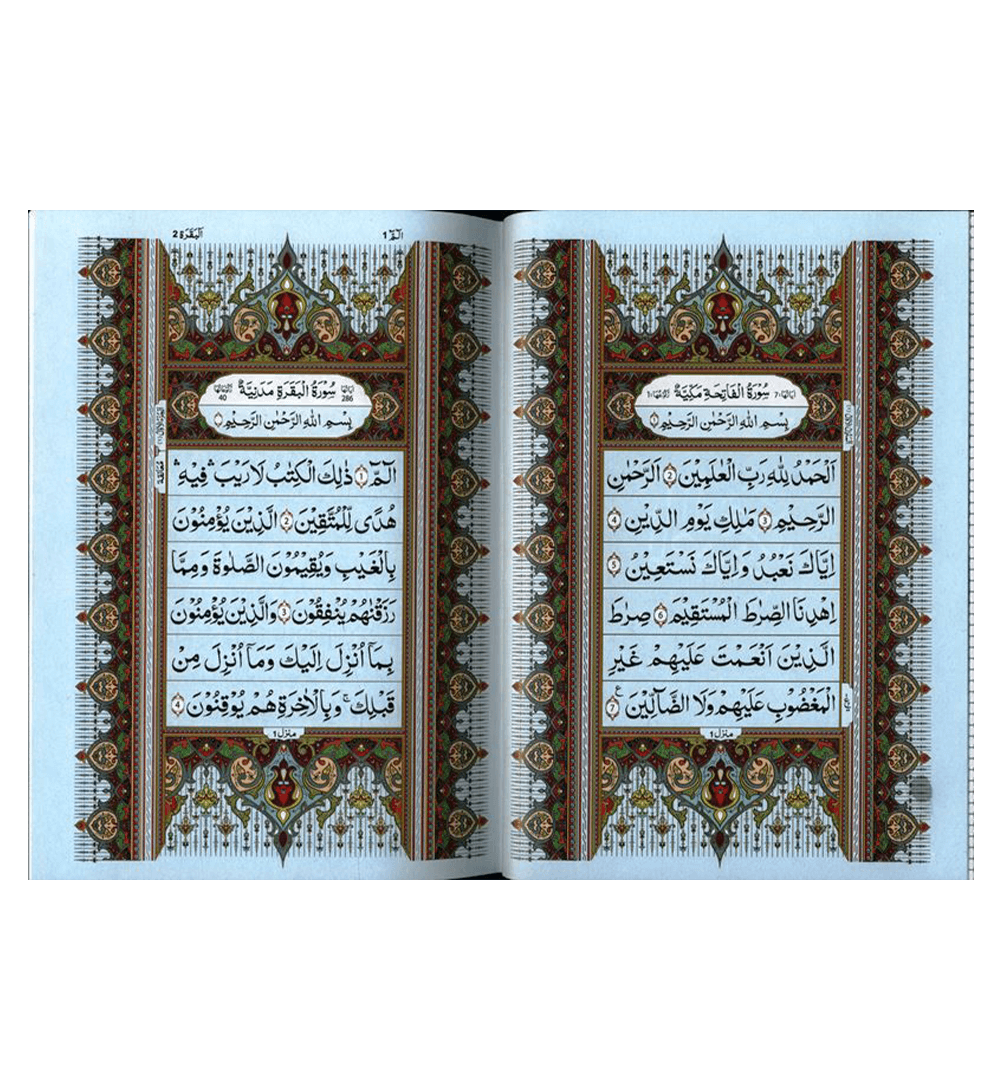 سُوْرَةُ الْفَاتِحَةِ مَكِّيَّةٌ
اٰيَاتُهَا 7
رُكُوْعُهَا 1
بِسْمِ اللهِ الرَّحْمٰنِ الرَّحِيْمِ 1
اَلْحَمْدُ لِلّٰهِ رَبِّ الْعٰلَمِيْنَ 2 الرَّحْمٰنِ
الرَّحِيْمِ 3 مٰلِكِ يَوْمِ الدِّيْنِ 4
اِيَّاكَ نَعْبُدُ وَاِيَّاكَ نَسْتَعِيْنُ 5
اِهْدِنَا الصِّرَاطَ الْمُسْتَقِيْمَ 6 صِرَاطَ
الَّذِيْنَ اَنْعَمْتَ عَلَيْهِمْ غَيْرِ
الْمَغْضُوْبِ عَلَيْهِمْ وَلَا الضَّآلِّيْنَ 7 ع
منزل ١
الٓمّٓ 1
اَلْبَقَرَة 2
سُوْرَةُ الْبَقَرَةِ مَدَنِيَّةٌ
اٰيَاتُهَا 286
رُكُوْعَاتُهَا 40
بِسْمِ اللهِ الرَّحْمٰنِ الرَّحِيْمِ
الٓمّٓ 1 ذٰلِكَ الْكِتٰبُ لَا رَيْبَ ۛ فِيْهِ ۛ
هُدًى لِّلْمُتَّقِيْنَ 2 الَّذِيْنَ يُؤْمِنُوْنَ
بِالْغَيْبِ وَيُقِيْمُوْنَ الصَّلٰوةَ وَمِمَّا
رَزَقْنٰهُمْ يُنْفِقُوْنَ 3 وَالَّذِيْنَ يُؤْمِنُوْنَ
بِمَآ اُنْزِلَ اِلَيْكَ وَمَآ اُنْزِلَ مِنْ
قَبْلِكَ ۚ وَبِالْاٰخِرَةِ هُمْ يُوْقِنُوْنَ 4
منزل ١
معانقة